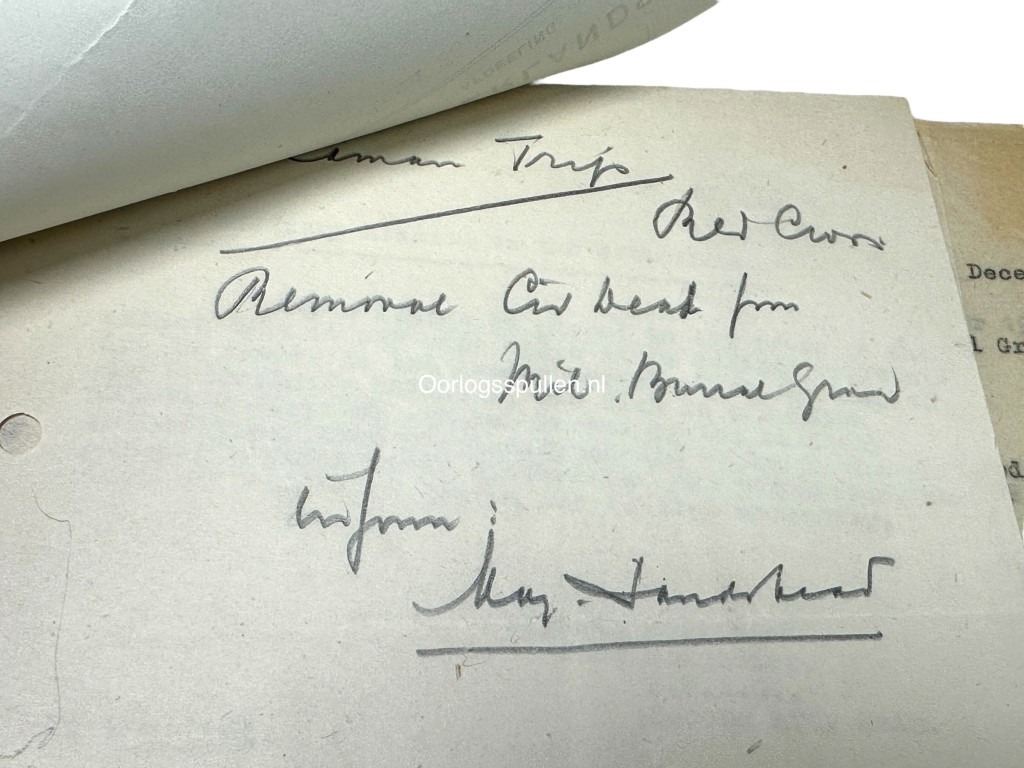 Trip
Red Cross
Removal Civ Dead from
Mil. Burial Ground
Inform:
Maj.
Oorlogsspullen.nl
Dece
l Gr
od